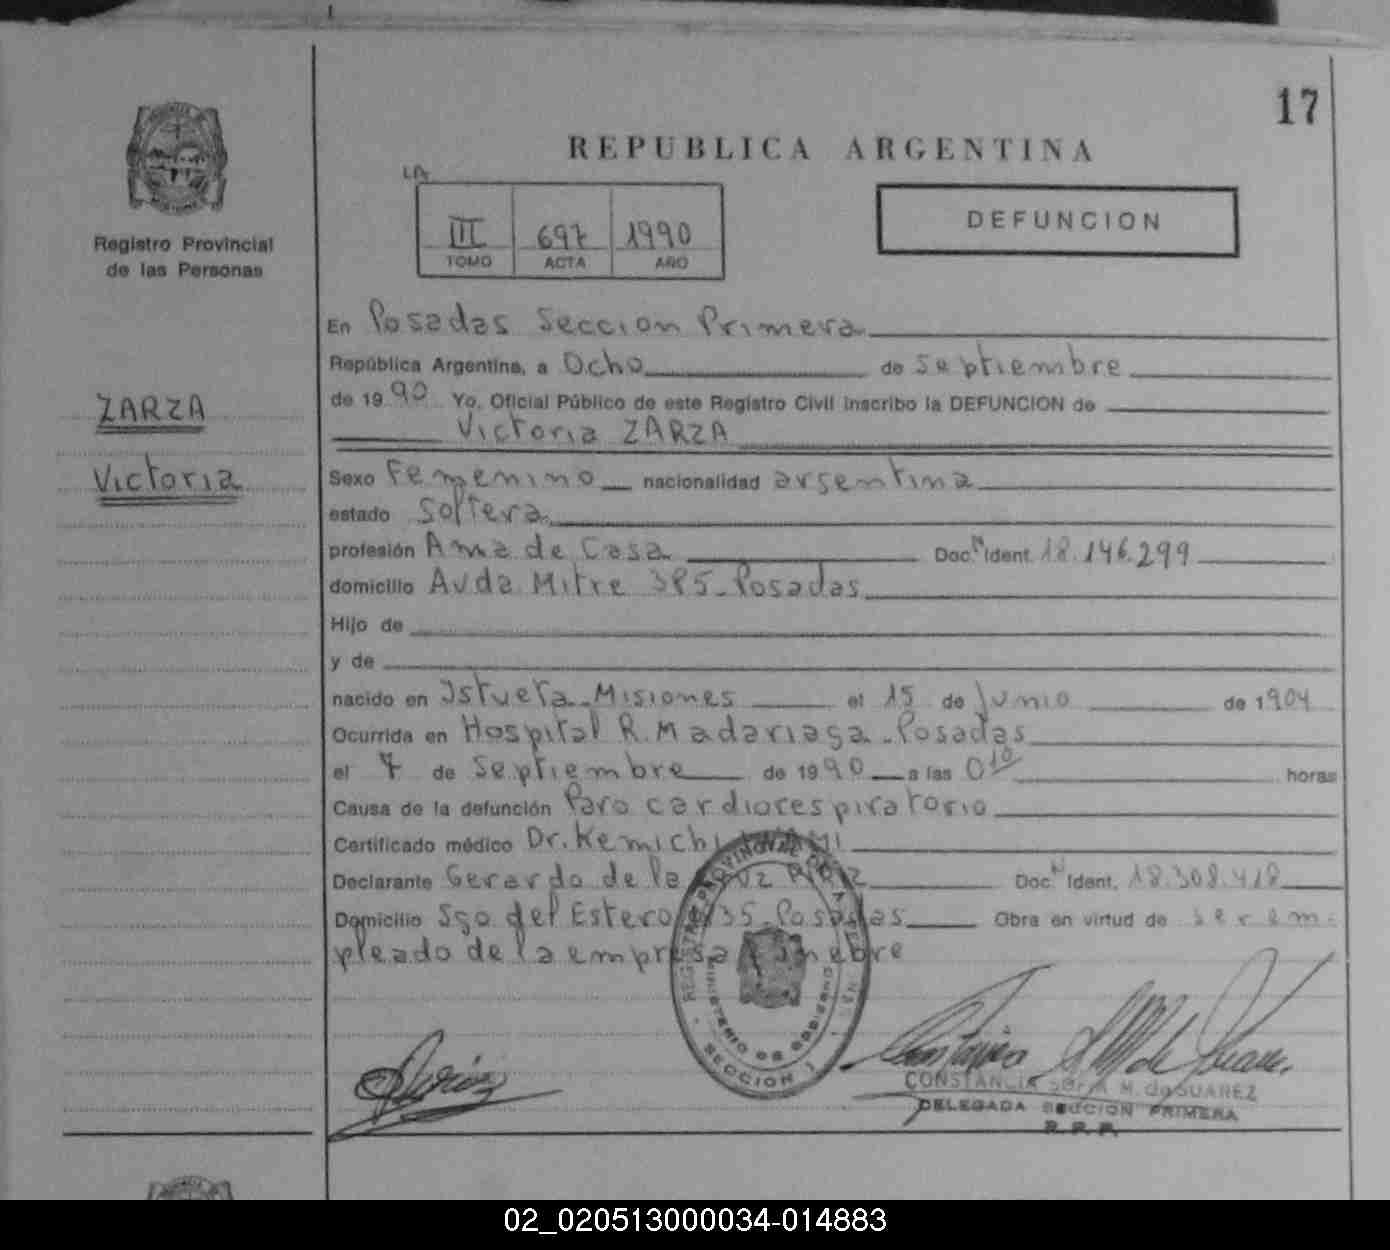 17
REPUBLICA ARGENTINA
LA
III 697 1990
TOMO ACTA AÑO
DEFUNCION
Registro Provincial
de las Personas
ZARZA
Victoria
En Posadas Seccion Primera
República Argentina, a Ocho de septiembre
de 1990 Yo, Oficial Público de este Registro Civil inscribo la DEFUNCION de
Victoria ZARZA
Sexo Femenino nacionalidad argentina
estado soltera
profesión Ama de Casa Doc. N Ident. 18.146.299
domicilio Avda. Mitre 385-Posadas
Hijo de
y de
nacido en Istueta-Misiones el 15 de Junio de 1904
Ocurrida en Hospital R. Madariaga-Posadas
el 7 de Septiembre de 1990 a las 0 10 horas
Causa de la defunción Paro cardiorespiratorio
Certificado médico Dr. Kemichi
Declarante Gerardo de la Doc. N Ident. 18.308.418
Domicilio Sgo del Estero 35-Posadas Obra en virtud de ser em-
pleado de la empresa funebre
REGISTRO PROVINCIAL DE LAS PERSONAS
MINISTERIO DE GOBIERNO
SECCION 1
CONSTANCIA M. de SUAREZ
DELEGADA SECCION PRIMERA
R. P. P.
02_020513000034-014883